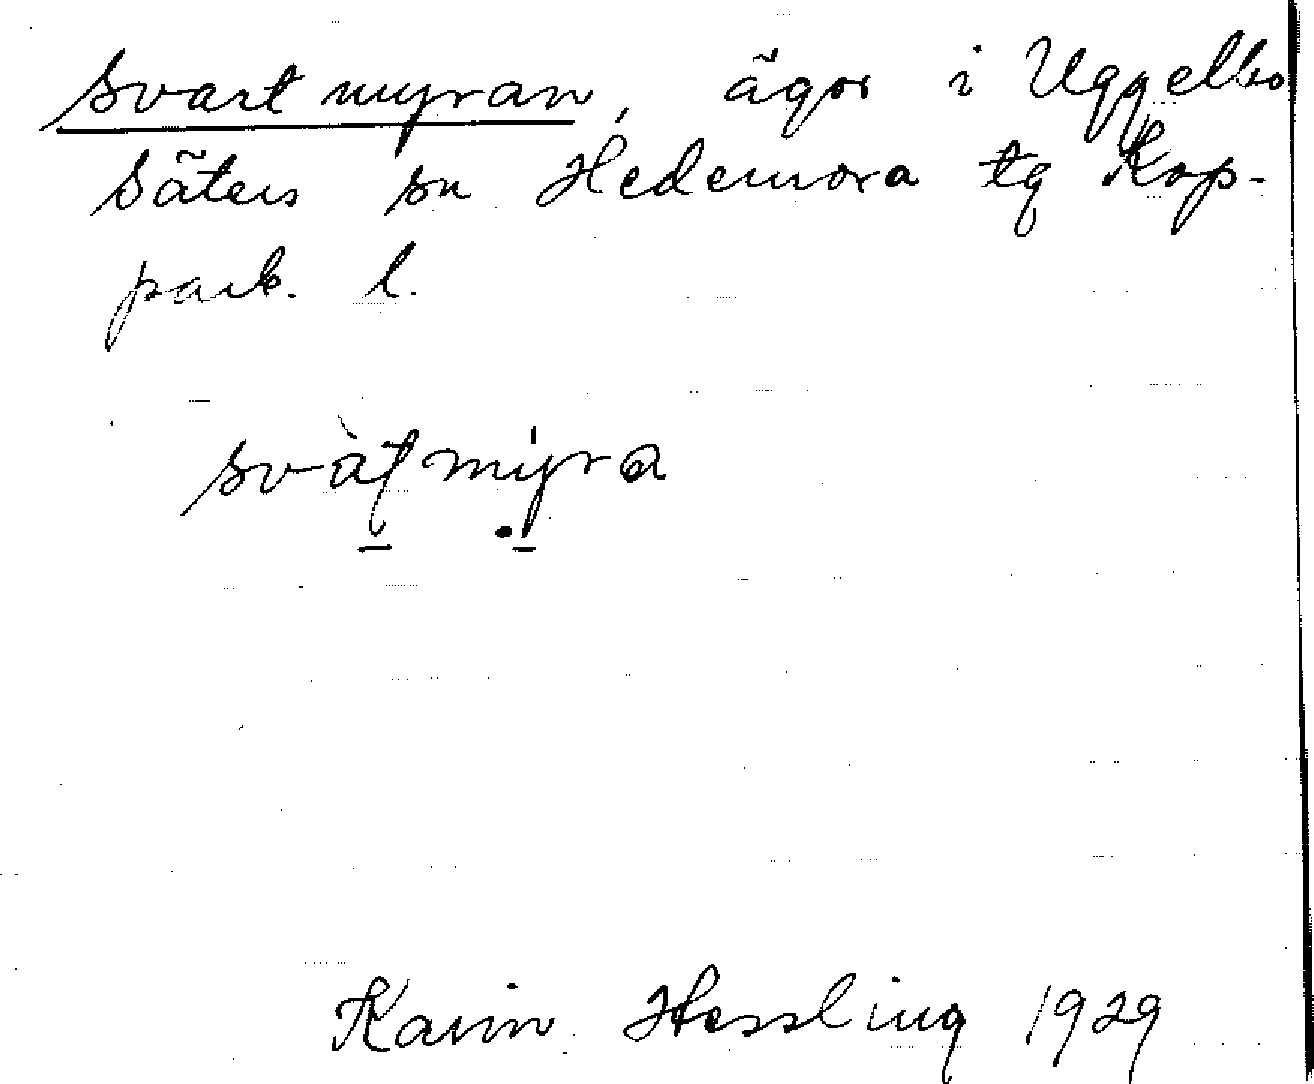 Svartmyran, ägor i Uggelbo
Säters sn Hedemora tg Kop-
parb. l.
svàtmýra
Karin Hessling 1929